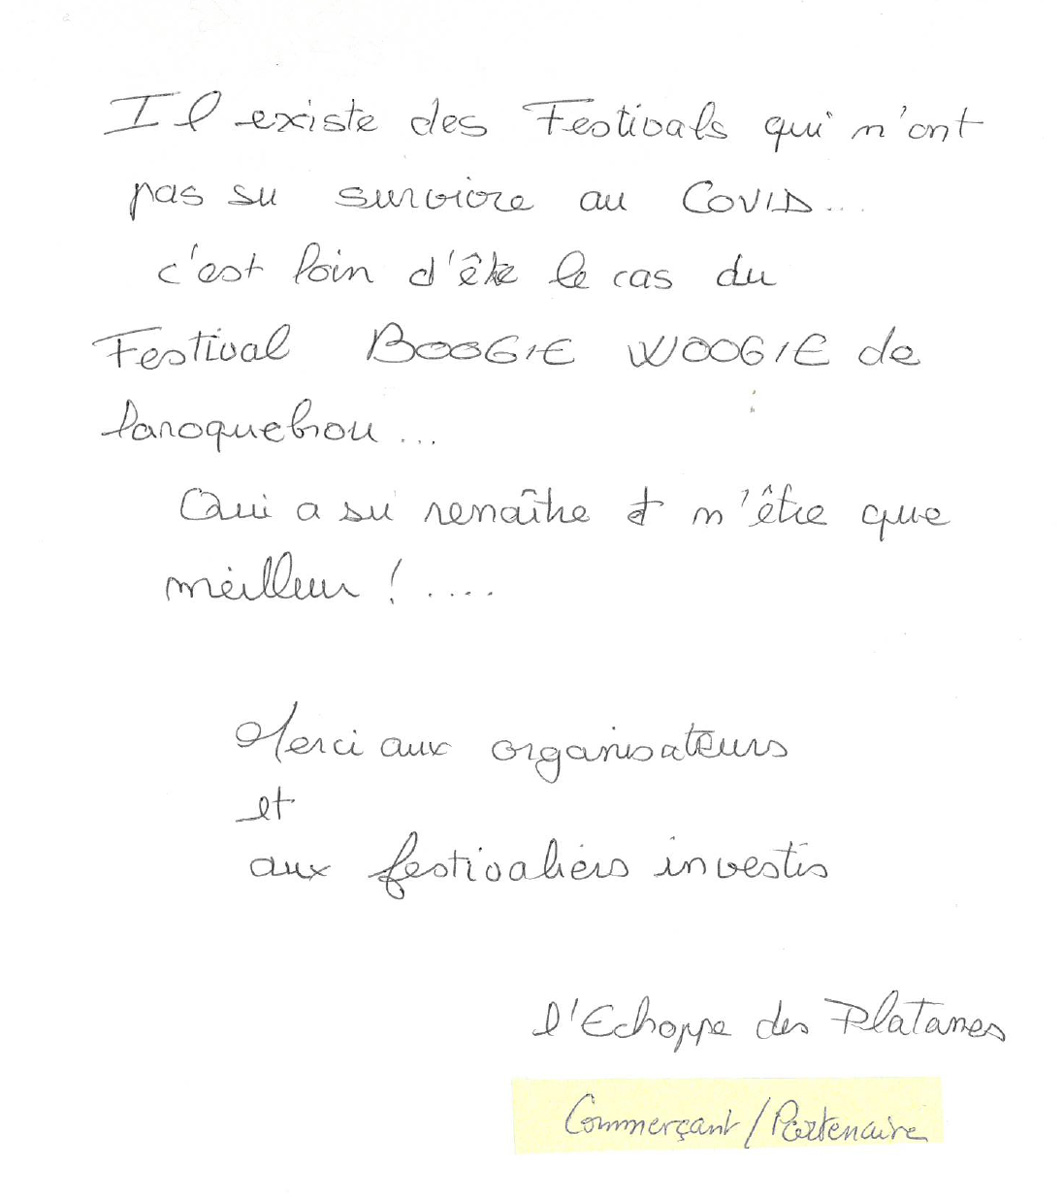 Il existe des Festivals qui n'ont
pas su survivre au COVID...
c'est loin d'être le cas du
Festival BOOGIE WOOGIE de
Laroquebrou...
Qui a su renaître et n'être que
meilleur !....
Merci aux organisateurs
et
aux festivaliers investis
l'Echoppe des Platanes
Commerçant / Partenaire